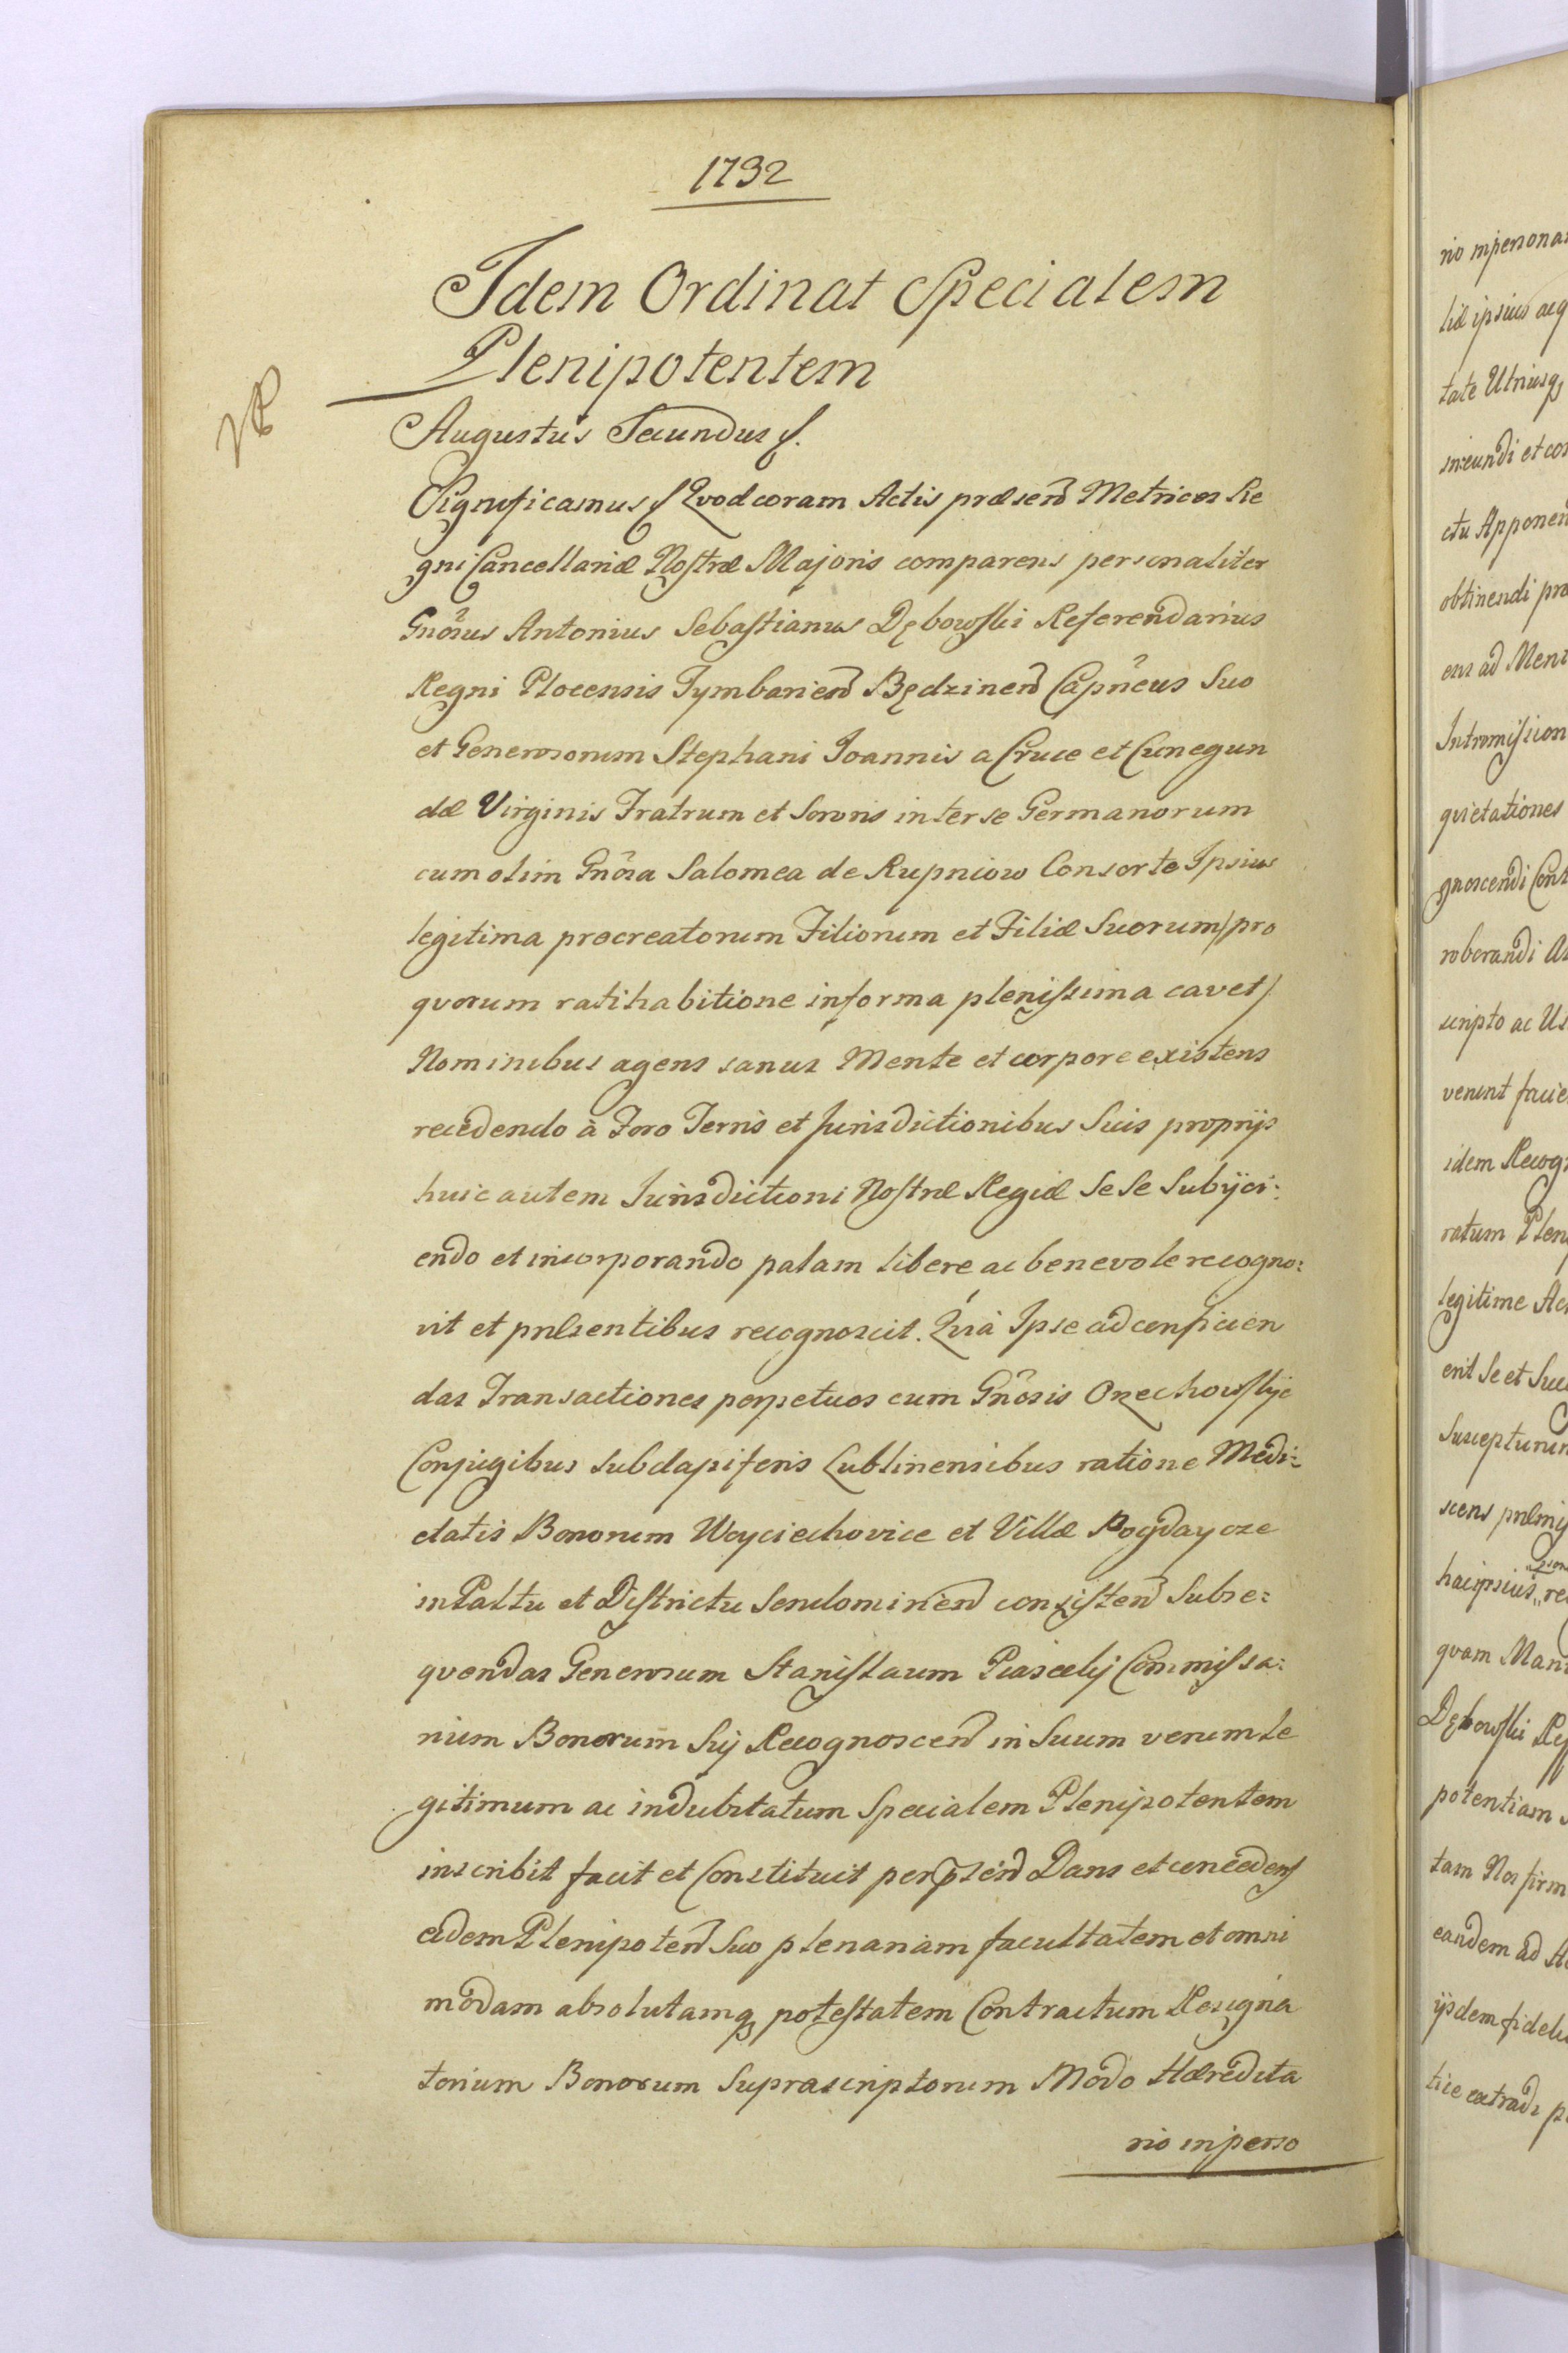 1732
Idem Ordinat Specialem
Plenipotentem
Augustus Secundus
Significamus Qvod coram Actis præsen Metrices Re
gni Cancellariæ Nostræ Majoris comparens personaliter
Gnosus Antonius Sebastianus Dębowski Referendarius
Regni Plocensis Tymbarien Będzinen Capneus Suo
et Generosorum Stephani Joannis a Cruce et Cunegun
dæ Virginis Fratrum et Sororis inter se Germanorum
cum olim Gnosa Salomea de Rupniow Consorte Ipsius
legitima procreatorum Filiorum et Filiæ Suorum/pro
qvorum ratihabitione in forma plenissima cavet/
Nominibus agens sanus Mente et corpore existens
recedendo à Foro Terris et Jurisdictionibus Suis proprijs
huic autem Jurisdictioni Nostræ Regiæ Se Se Subijci:
endo et incorporando palam libere ac benevole recogno:
vit et prǽsentibus recognoscit. Qvià Ipse ad conficien
das Transactiones perpetuos cum Gnosis Orzechowskie
Conjugibus Subdapiferis Lublinensibus ratione Medi:
etatis Bonorum Woyciechovice et Villæ Pogdaycze
in Paltu et Districtu Sendomirien consisten Subse:
qvendas Generosum Stanislaum Piasecki Commissa:
rium Bonorum Sui Recognoscen in Suum verum le
gitimum ac indubitatum Specialem Plenipotentem
inscribit facit et Constituit per psen Dans et concedens
eidem Plenipoten Suo plenariam facultatem et omni
modam absolutamq potestatem Contractum Resigna
torium Bonorum Suprascriptorum Modo Hæredita
rio in perso
rio in personas
liæ ipsius aeq
tate Utriusq
ineundi et con
ctu Apponen
obtinendi pro
ens ad Men
Intromission
qvietationes
gnoscendi Cont
roborandi
scripto ac
venint facie
idem Recog
ratum Plen
legitime Ac
erit Se et Suc
Susceptur
scens
hac ipsius re
qvam Man
Dębowski Ref
potentiam
tam Nos firm
eandem ad
ijsdem fideli
tice extradi